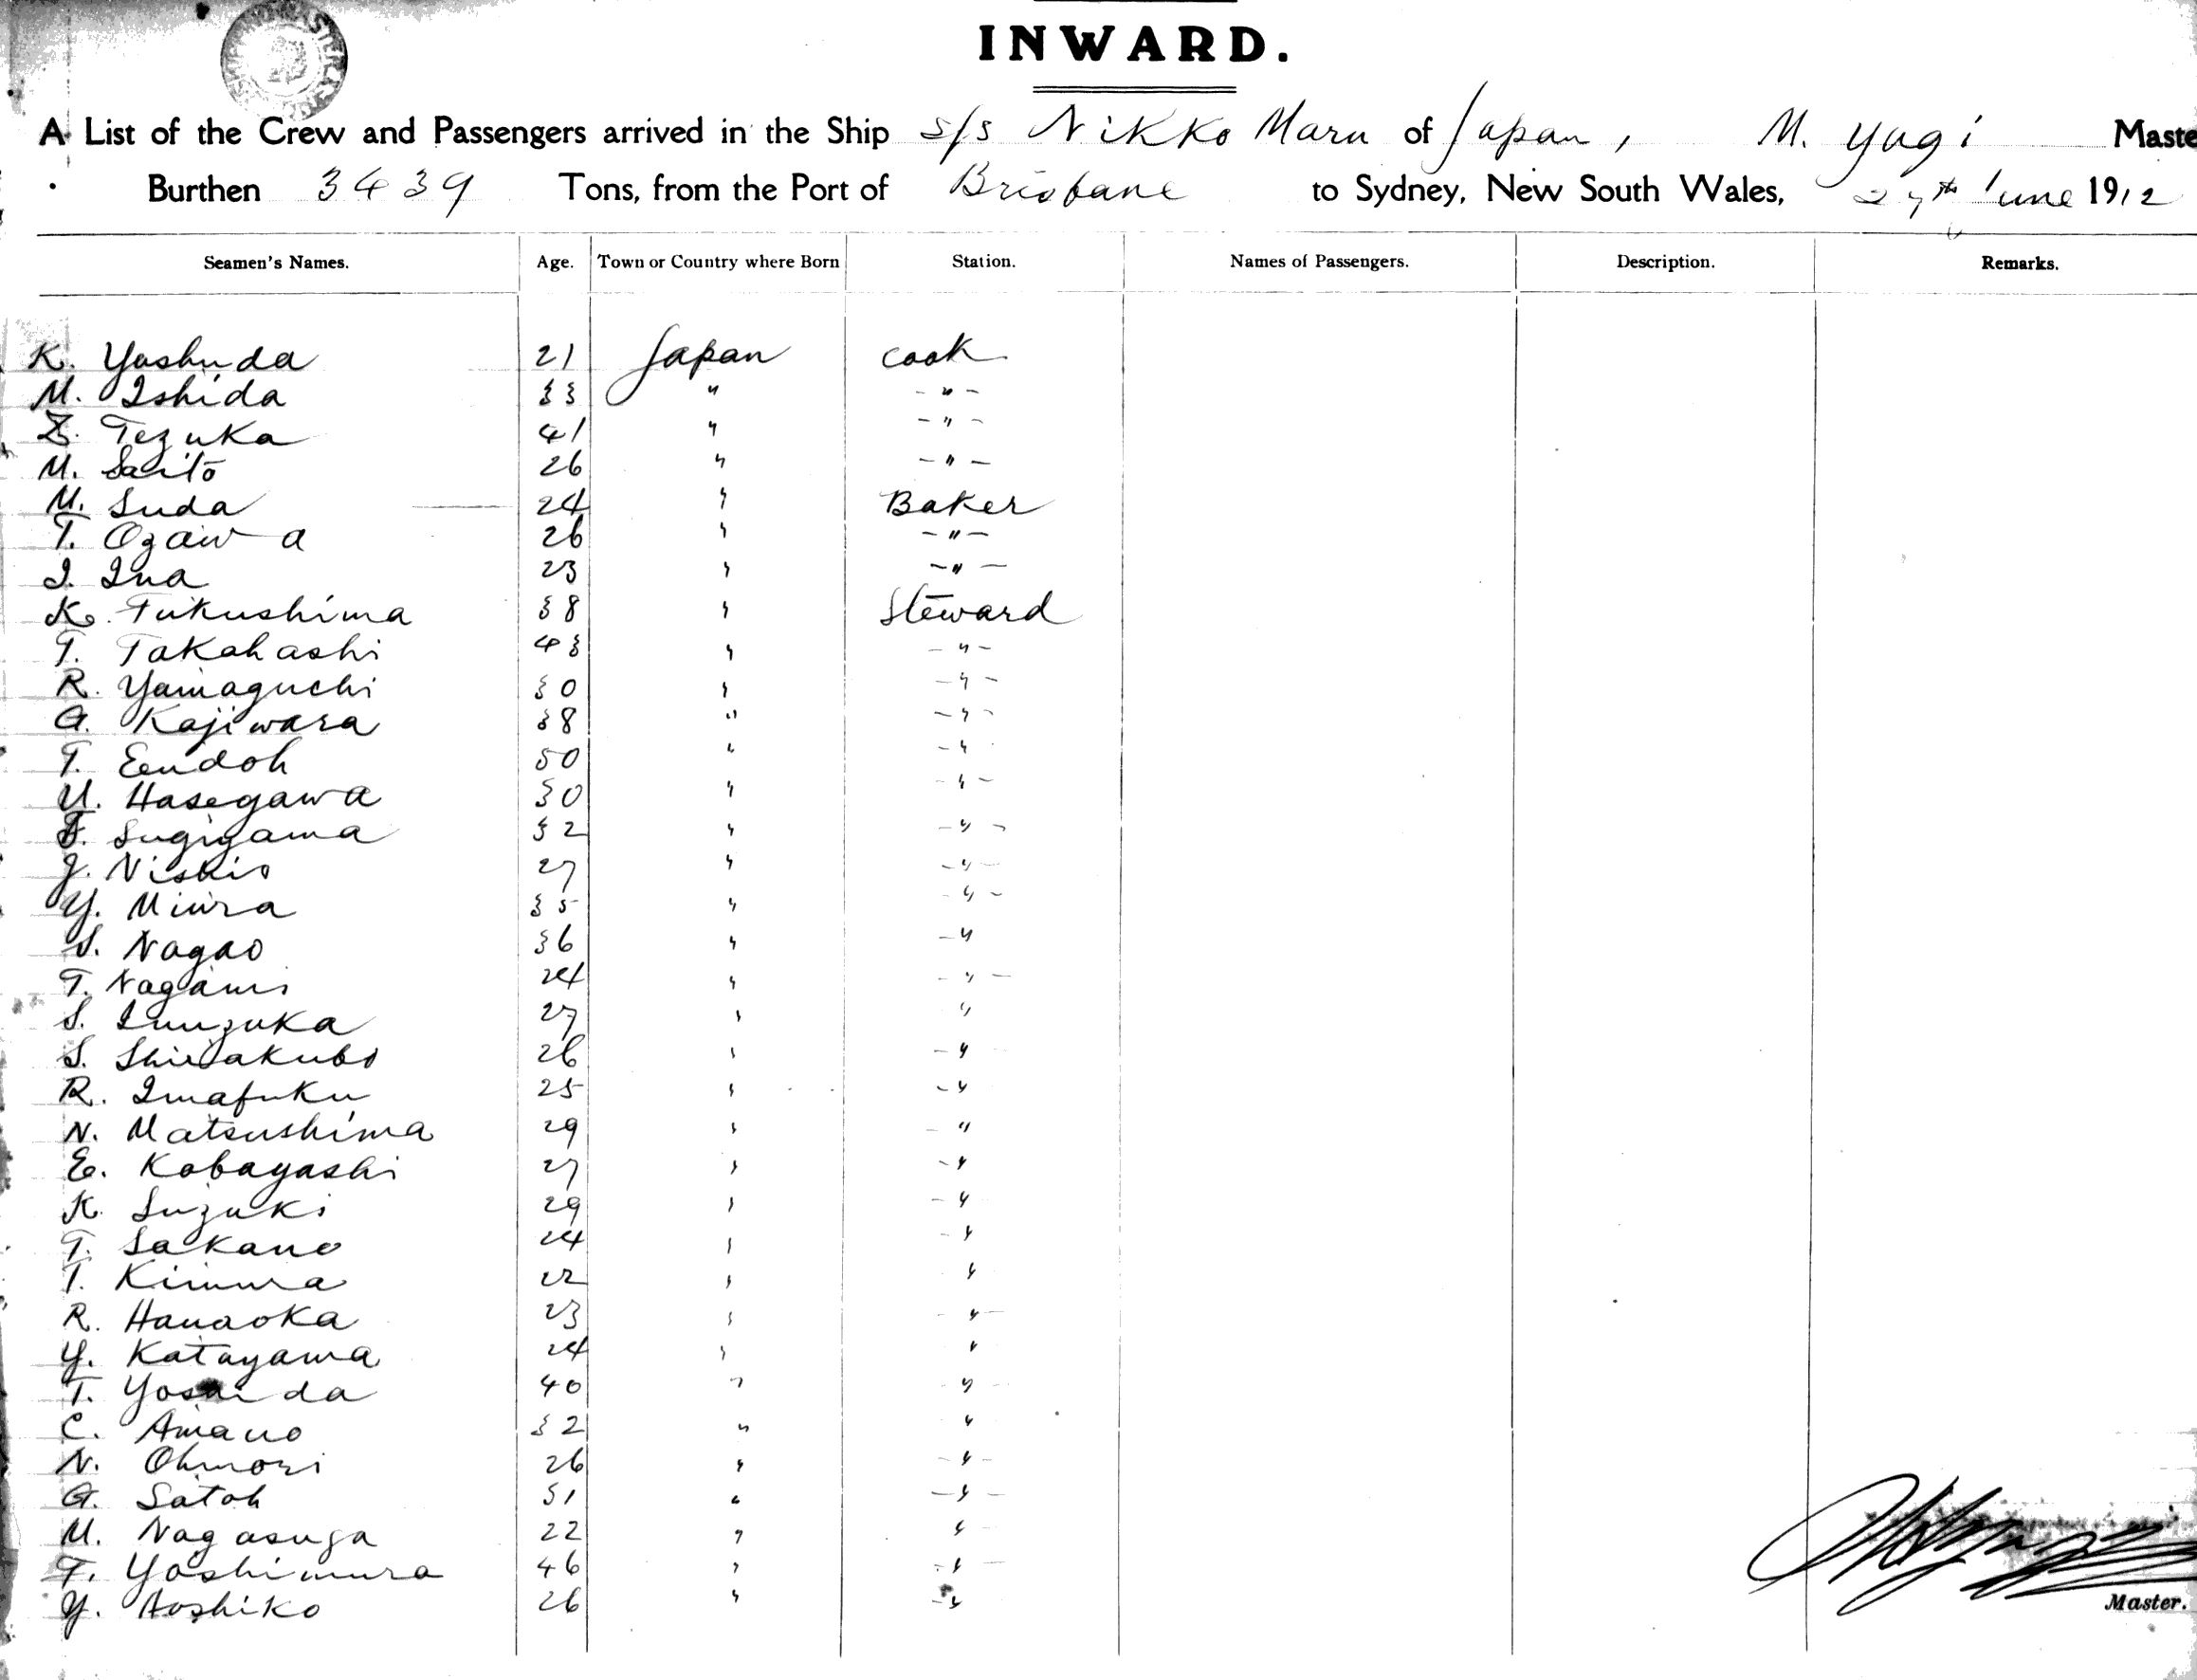 INWARD.
A List of the Crew and Passengers arrived in the Ship s/s Nikko Maru of Japan, M. Yagi Maste
Burthen 3439 Tons, from the Port of Brisbane to Sydney, New South Wales, 27th June 1912
Seamen's Names. Age. Town or Country where Born Station. Names of Passengers. Description. Remarks.
K. Yoshuda 21 Japan cook
M. Ishida 33 " - " -
Z. Tezuka 41 " - " -
M. Saito 26 " - " -
M. Suda 24 " Baker
T. Ozawa 26 " - " -
I. Ina 23 " - " -
K. Fukushima 38 " Steward
T. Takahashi 43 " - " -
R. Yamaguchi 30 " - " -
G. Kajiwara 38 " - " -
T. Eendoh 50 " - "
U. Hasegawa 30 " - " -
Sugiyama 32 " - " -
J. Nishio 27 " - " -
Y. Miura 35 " - " -
S. Nagao 36 " - "
T. Nagami 24 " - " -
S. Inuzuka 27 " "
S. Shirakubo 26 " - "
R. Imafuku 25 " - "
N. Matsushima 29 " - "
E. Kobayashi 27 " - "
K. Suzuki 29 " - "
T. Sakano 24 " - "
T. Kimura 22 " "
R. Hanaoka 23 " - " -
Y. Katayama 24 " "
T. Yoshida 40 " - " -
C. Amano 32 " "
N. Ohmori 26 " - " -
G. Satoh 31 " - " -
M. Nagasuga 22 " " -
T. Yoshimura 46 " - " -
Y. Aoshiko 26 " - "
Master.